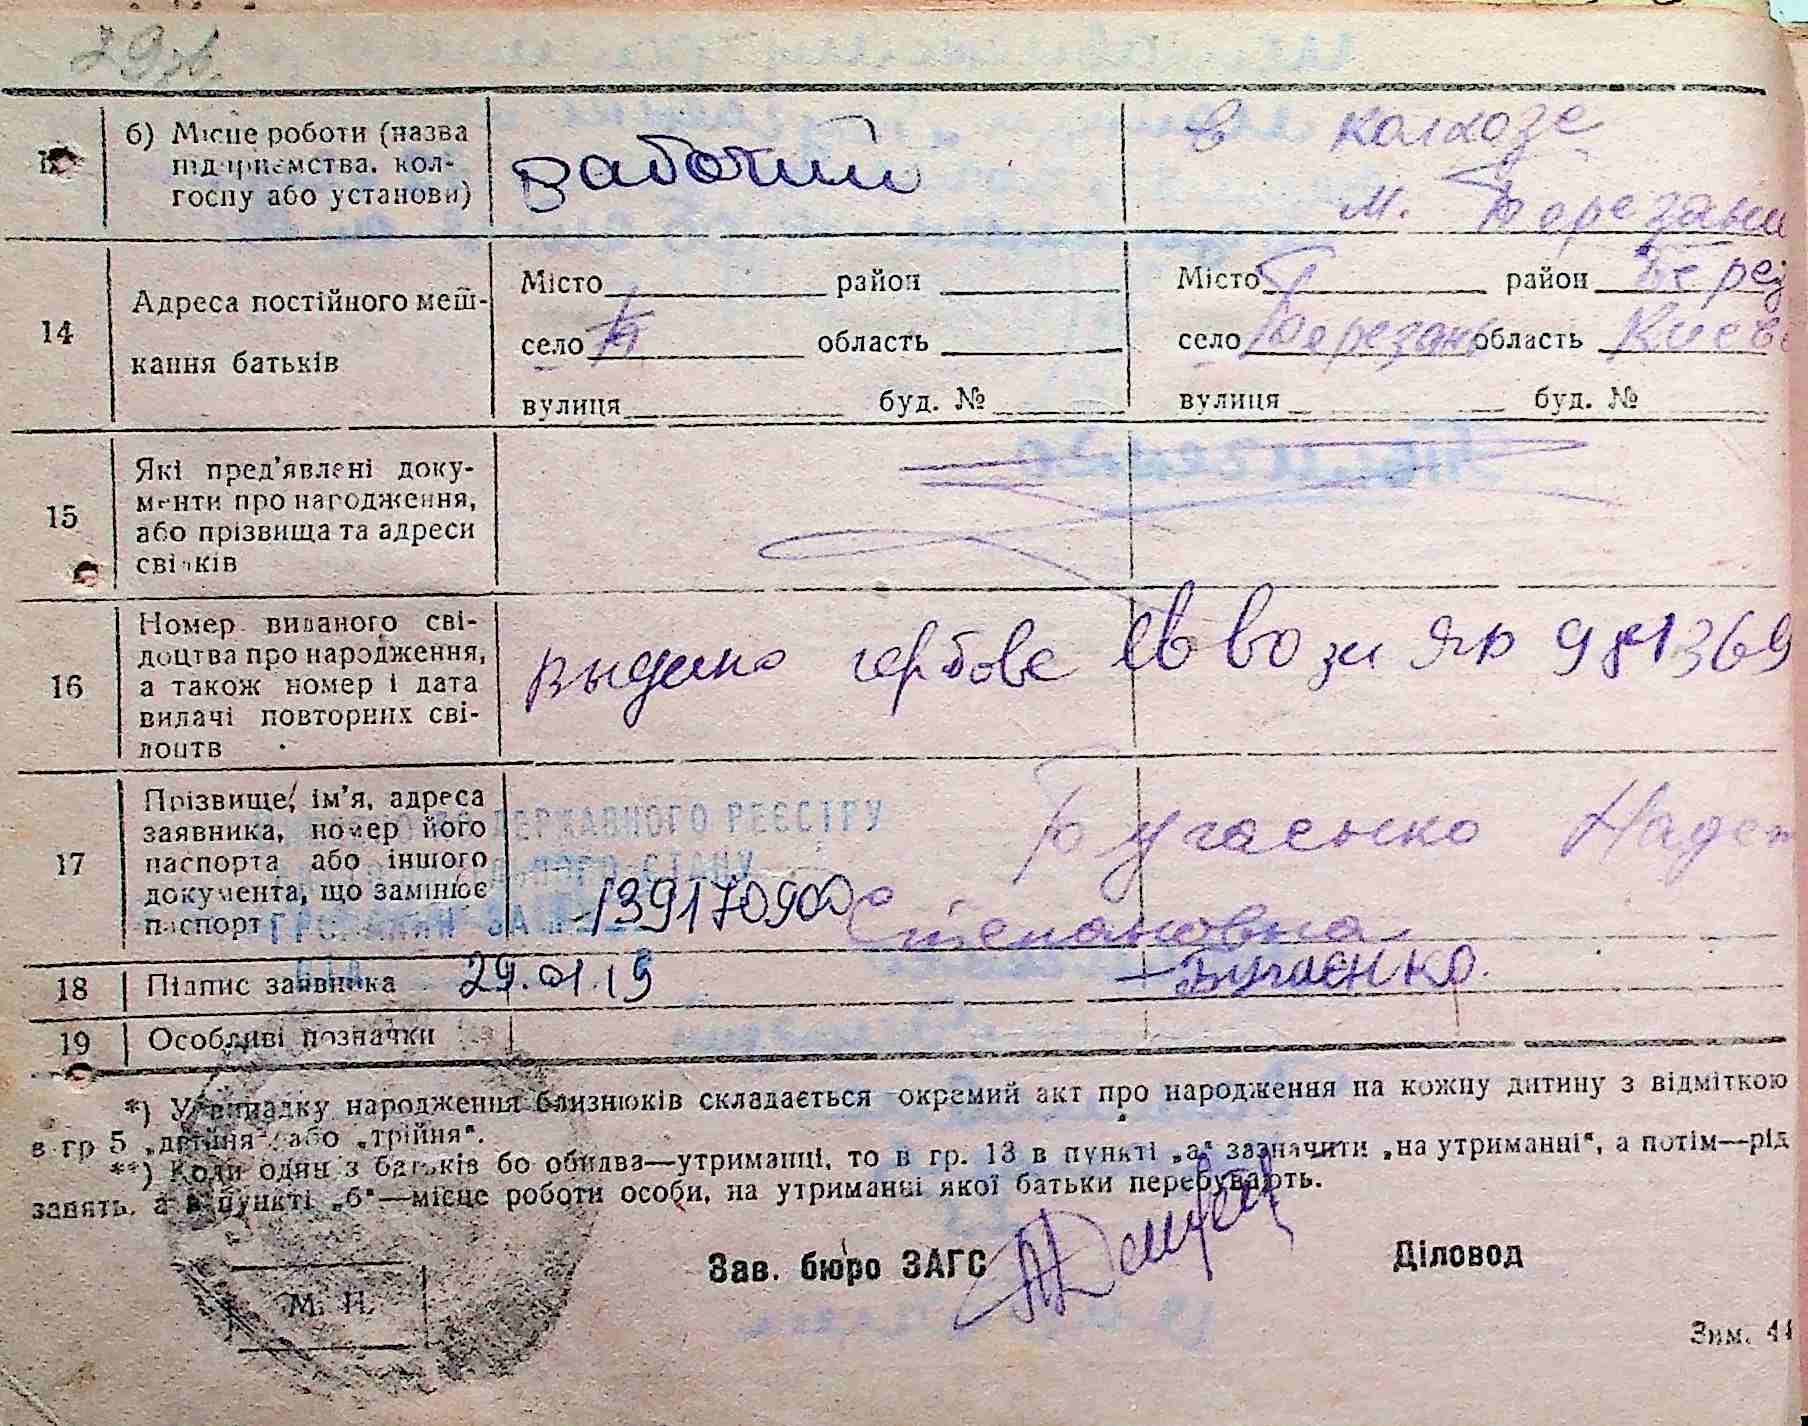 29
б) Місце роботи (назва підприємства, колгоспу або установи)
рабочий
в колхозе
м. Березань
14
Адреса постійного мешкання батьків
Місто район
село область
вулиця буд. №
Місто район Берез
село Березань область Киев
вулиця буд. №
15
Які пред'явлені документи про народження, або прізвища та адреси свідків
16
Номер виданого свідоцтва про народження, а також номер і дата видачі повторних свідоцтв
гербове 981369
17
Прізвище, ім'я, адреса заявника, номер його паспорта або іншого документа, що замінює паспорт
ДЕРЖАВНОГО РЕЄСТРУ
Бугаенко Надеж
Степановна
18 Підпис заявника 29.01.19
Бугаєнко.
19 Особливі позначки
*) У випадку народження близнюків складається окремий акт про народження на кожну дитину з відміткою
в гр 5 „двійня“ або „трійня“.
**) Коли один з батьків бо обидва—утриманці, то в гр. 13 в пункті „а“ зазначити „на утриманні“, а потім—рід
занять, а в пункті „б“—місце роботи особи, на утриманні якої батьки перебувають.
Зав. бюро ЗАГС
Діловод
М. П.
Зим. 44